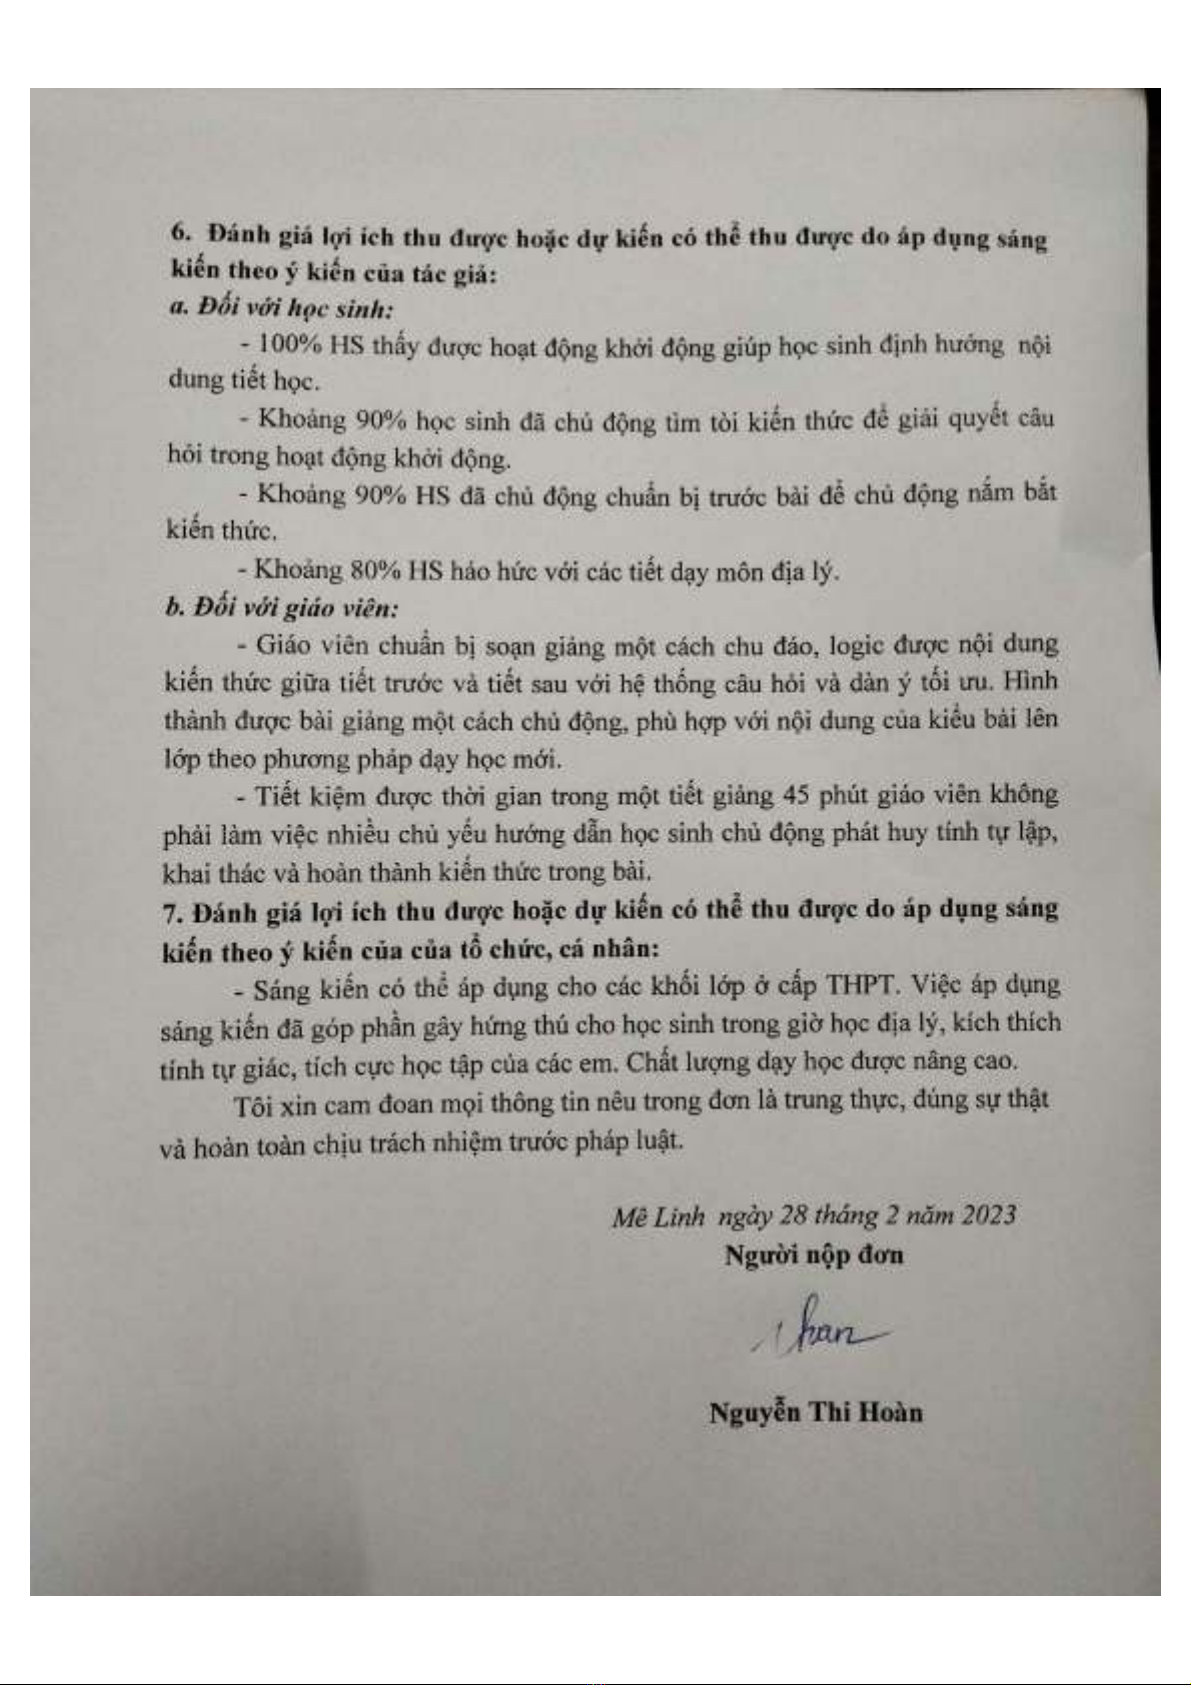 6. Đánh giá lợi ích thu được hoặc dự kiến có thể thu được do áp dụng sáng
kiến theo ý kiến của tác giả:
a. Đối với học sinh:
- 100% HS thấy được hoạt động khởi động giúp học sinh định hướng nội
dung tiết học.
- Khoảng 90% học sinh đã chủ động tìm tòi kiến thức để giải quyết câu
hỏi trong hoạt động khởi động.
- Khoảng 90% HS đã chủ động chuẩn bị trước bài để chủ động nắm bắt
kiến thức.
- Khoảng 80% HS háo hức với các tiết dạy môn địa lý.
b. Đối với giáo viên:
- Giáo viên chuẩn bị soạn giảng một cách chu đáo, logic được nội dung
kiến thức giữa tiết trước và tiết sau với hệ thống câu hỏi và dàn ý tối ưu. Hình
thành được bài giảng một cách chủ động, phù hợp với nội dung của kiểu bài lên
lớp theo phương pháp dạy học mới.
- Tiết kiệm được thời gian trong một tiết giảng 45 phút giáo viên không
phải làm việc nhiều chủ yếu hướng dẫn học sinh chủ động phát huy tính tự lập,
khai thác và hoàn thành kiến thức trong bài.
7. Đánh giá lợi ích thu được hoặc dự kiến có thể thu được do áp dụng sáng
kiến theo ý kiến của của tổ chức, cá nhân:
- Sáng kiến có thể áp dụng cho các khối lớp ở cấp THPT. Việc áp dụng
sáng kiến đã góp phần gây hứng thú cho học sinh trong giờ học địa lý, kích thích
tính tự giác, tích cực học tập của các em. Chất lượng dạy học được nâng cao.
Tôi xin cam đoan mọi thông tin nêu trong đơn là trung thực, đúng sự thật
và hoàn toàn chịu trách nhiệm trước pháp luật.
Mê Linh ngày 28 tháng 2 năm 2023
Người nộp đơn
Nguyễn Thi Hoàn